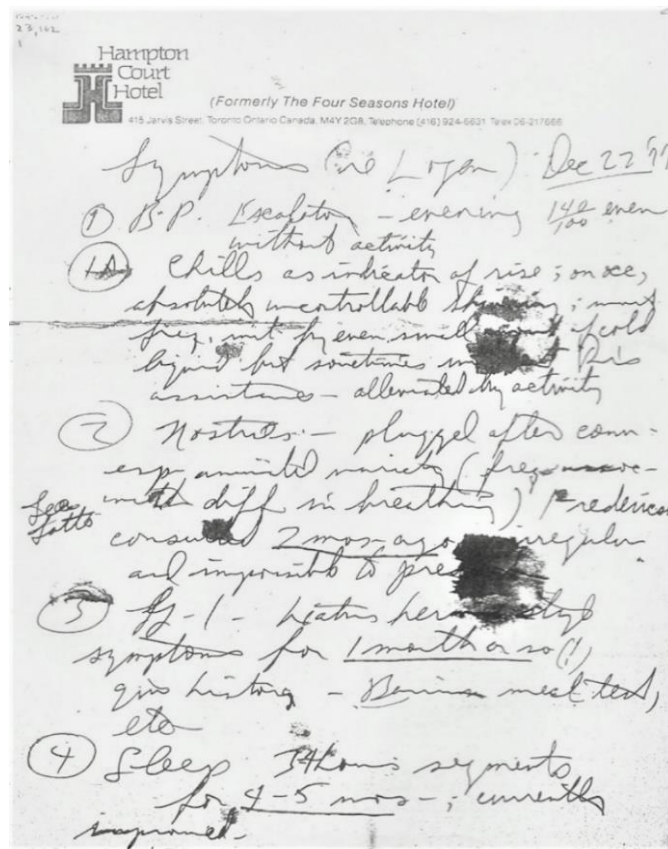 23,162
1
Hampton
Court
Hotel
(Formerly The Four Seasons Hotel)
415 Jarvis Street, Toronto Ontario Canada, M4Y 2G8, Telephone (416) 924-6631 Telex 06-217666
Symptoms (re Logan) Dec 22 '77
① B.P. Escalation – evening 140/100 even
without activity
1A Chills as indicator of rise; on occ,
absolutely uncontrollable ; most
freq. by even small of cold
liquid but sometimes this
assistance – alleviated by activity
② Nostrils: – plugged after conv-
esp. animated variety (freq. assoc-
with diff in breathing)
consulted 2 mos. ago irregular
and impossible to
③ G-I – hiatus
symptoms for 1 month or so (!),
give history – meal test,
etc
④ Sleep 3-4 hour segments
for 4-5 mos – ; currently
improved –